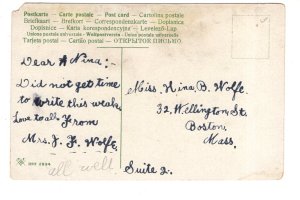 Postkarte — Carte postale — Post card — Cartolina postale
Briefkart — Brefkort — Korrespondenzkarte — Briefkaart
Dopisnice — Karta korespondencyjna — Levelező-Lap
Unione postale universale — Weltpostverein — Union postale universelle
Tarjeta postal — Cartão postal — ОТКРЫТОЕ ПИСЬМО
Dear Nina:
Did not get time
to write this week
Love to all From
Mrs. J. F. Wolfe.
all well
Miss Nina B. Wolfe.
32, Wellington, St.
Boston,
Mass.
Suite 2.